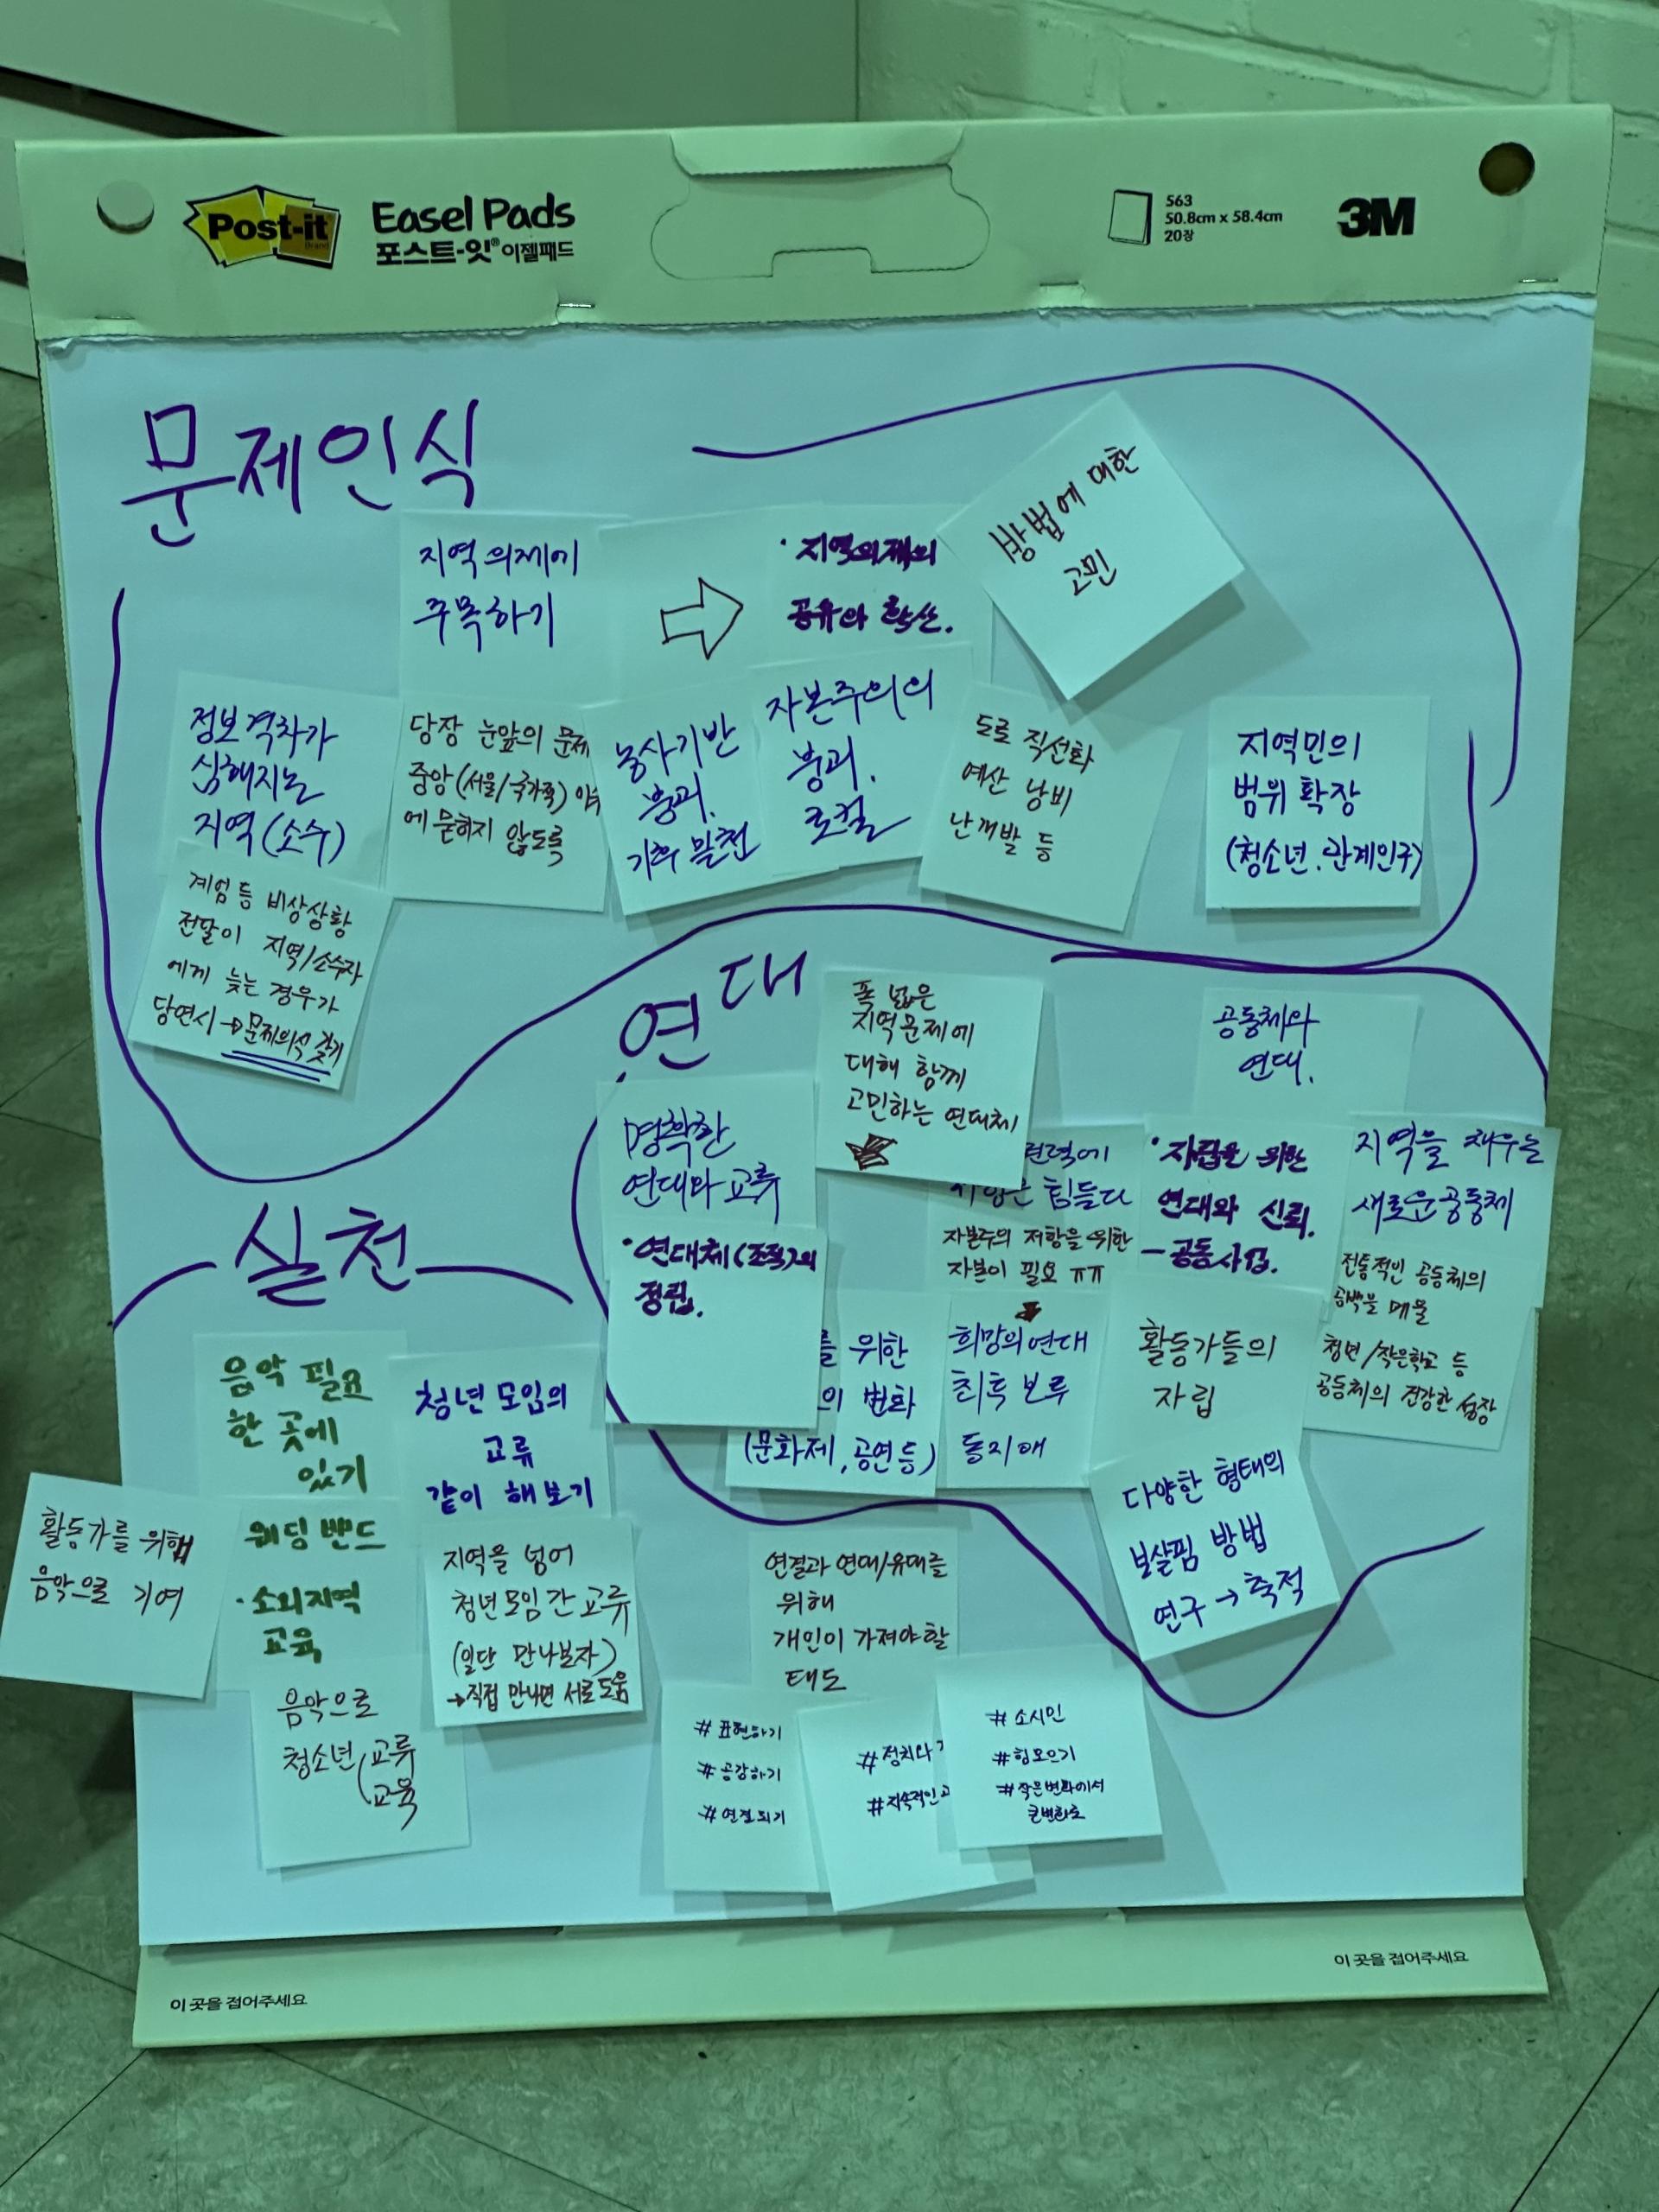 Post-it
Easel Pads
포스트-잇® 이젤패드
563
50.8cm x 58.4cm
20장
3M
문제인식
지역 의제에
주목하기
· 지역의제의
공유와 확산.
방법에 대한
고민
정보격차가
심해지는
지역 (소수)
계엄 등 비상상황
전달이 지역/소수자
에게 늦는 경우가
당연시 → 문제의식 갖기
당장 눈앞의 문제
중앙 (서울/국가폭)
에 묻히지 않도록
농사기반
붕괴.
자본주의의
붕괴.
로컬
도로 직선화
예산 낭비
난개발 등
지역민의
범위 확장
(청소년, 관계인구)
연대
폭 넓은
지역문제에
대해 함께
고민하는 연대체
공동체와
연대.
명확한
연대와 교류
· 연대체 (조직)의
정립.
권력에
힘들다
자본주의 저항을 위한
자본이 필요 ㅠㅠ
· 자립을 위한
연대와 신뢰.
- 공동사업.
지역을 채우는
새로운 공동체
전통적인 공동체의
공백을 메울
청년/작은학교 등
공동체의 건강한 성장
를 위한
의 변화
(문화제, 공연 등)
희망의 연대
최후 보루
동지애
활동가들의
자립
다양한 형태의
보살핌 방법
연구 → 축적
실천
음악 필요
한 곳에
있기
청년 모임의
교류
같이 해보기
활동가를 위해
음악으로 기여
웨딩 밴드
· 소외지역
교육
음악으로
청소년 (교류
교육
지역을 넘어
청년모임 간 교류
(일단 만나보자)
→ 직접 만나면 서로 도움
연결과 연대/유대를
위해
개인이 가져야할
태도
# 표현하기
# 공감하기
# 연결되기
# 정치와
# 지속적인
# 소시민
# 힘모으기
# 작은변화에서
큰변화로
이 곳을 접어주세요
이 곳을 접어주세요